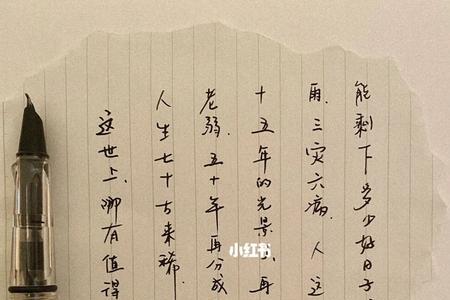 这世上，哪有值得
人生七十古来稀.
老弱，五十年再分成
十五年的光景，再
雨，三灾六病，人这
能剩下多少好日子
小红书